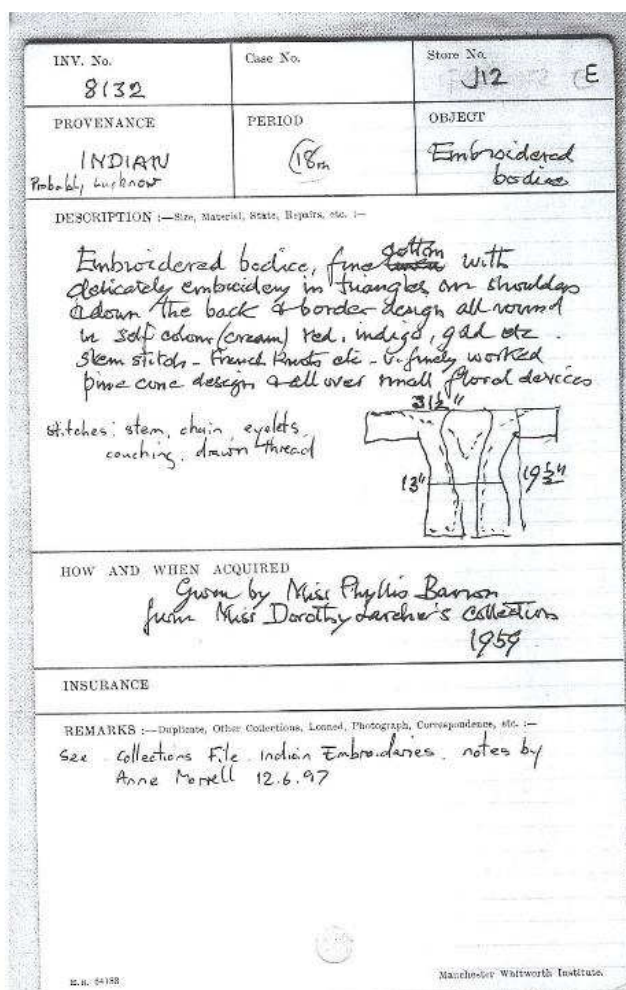 INV. No.
8132
Case No.
Store No.
J12 E
PROVENANCE
INDIAN
Probably Lucknow
PERIOD
C18th
OBJECT
Embroidered
bodice
DESCRIPTION :—Size, Material, State, Repairs, etc. :—
Embroidered bodice, fine cotton with
delicately embroidery in triangles on shoulders
& down the back & border design all round
in self colour (cream) red, indigo, gold etc.
Stem stitch - French Knots etc - v. finely worked
pine cone design & all over small floral devices
31½"
stitches: stem, chain, eyelets,
couching, drawn thread
13"
19½"
HOW AND WHEN ACQUIRED
Given by Miss Phyllis Barron
from Miss Dorothy Larcher's collection
1959
INSURANCE
REMARKS :—Duplicate, Other Collections, Loaned, Photograph, Correspondence, etc. :—
See Collections File Indian Embroideries, notes by
Anne Morrell 12.6.97
Manchester Whitworth Institute.